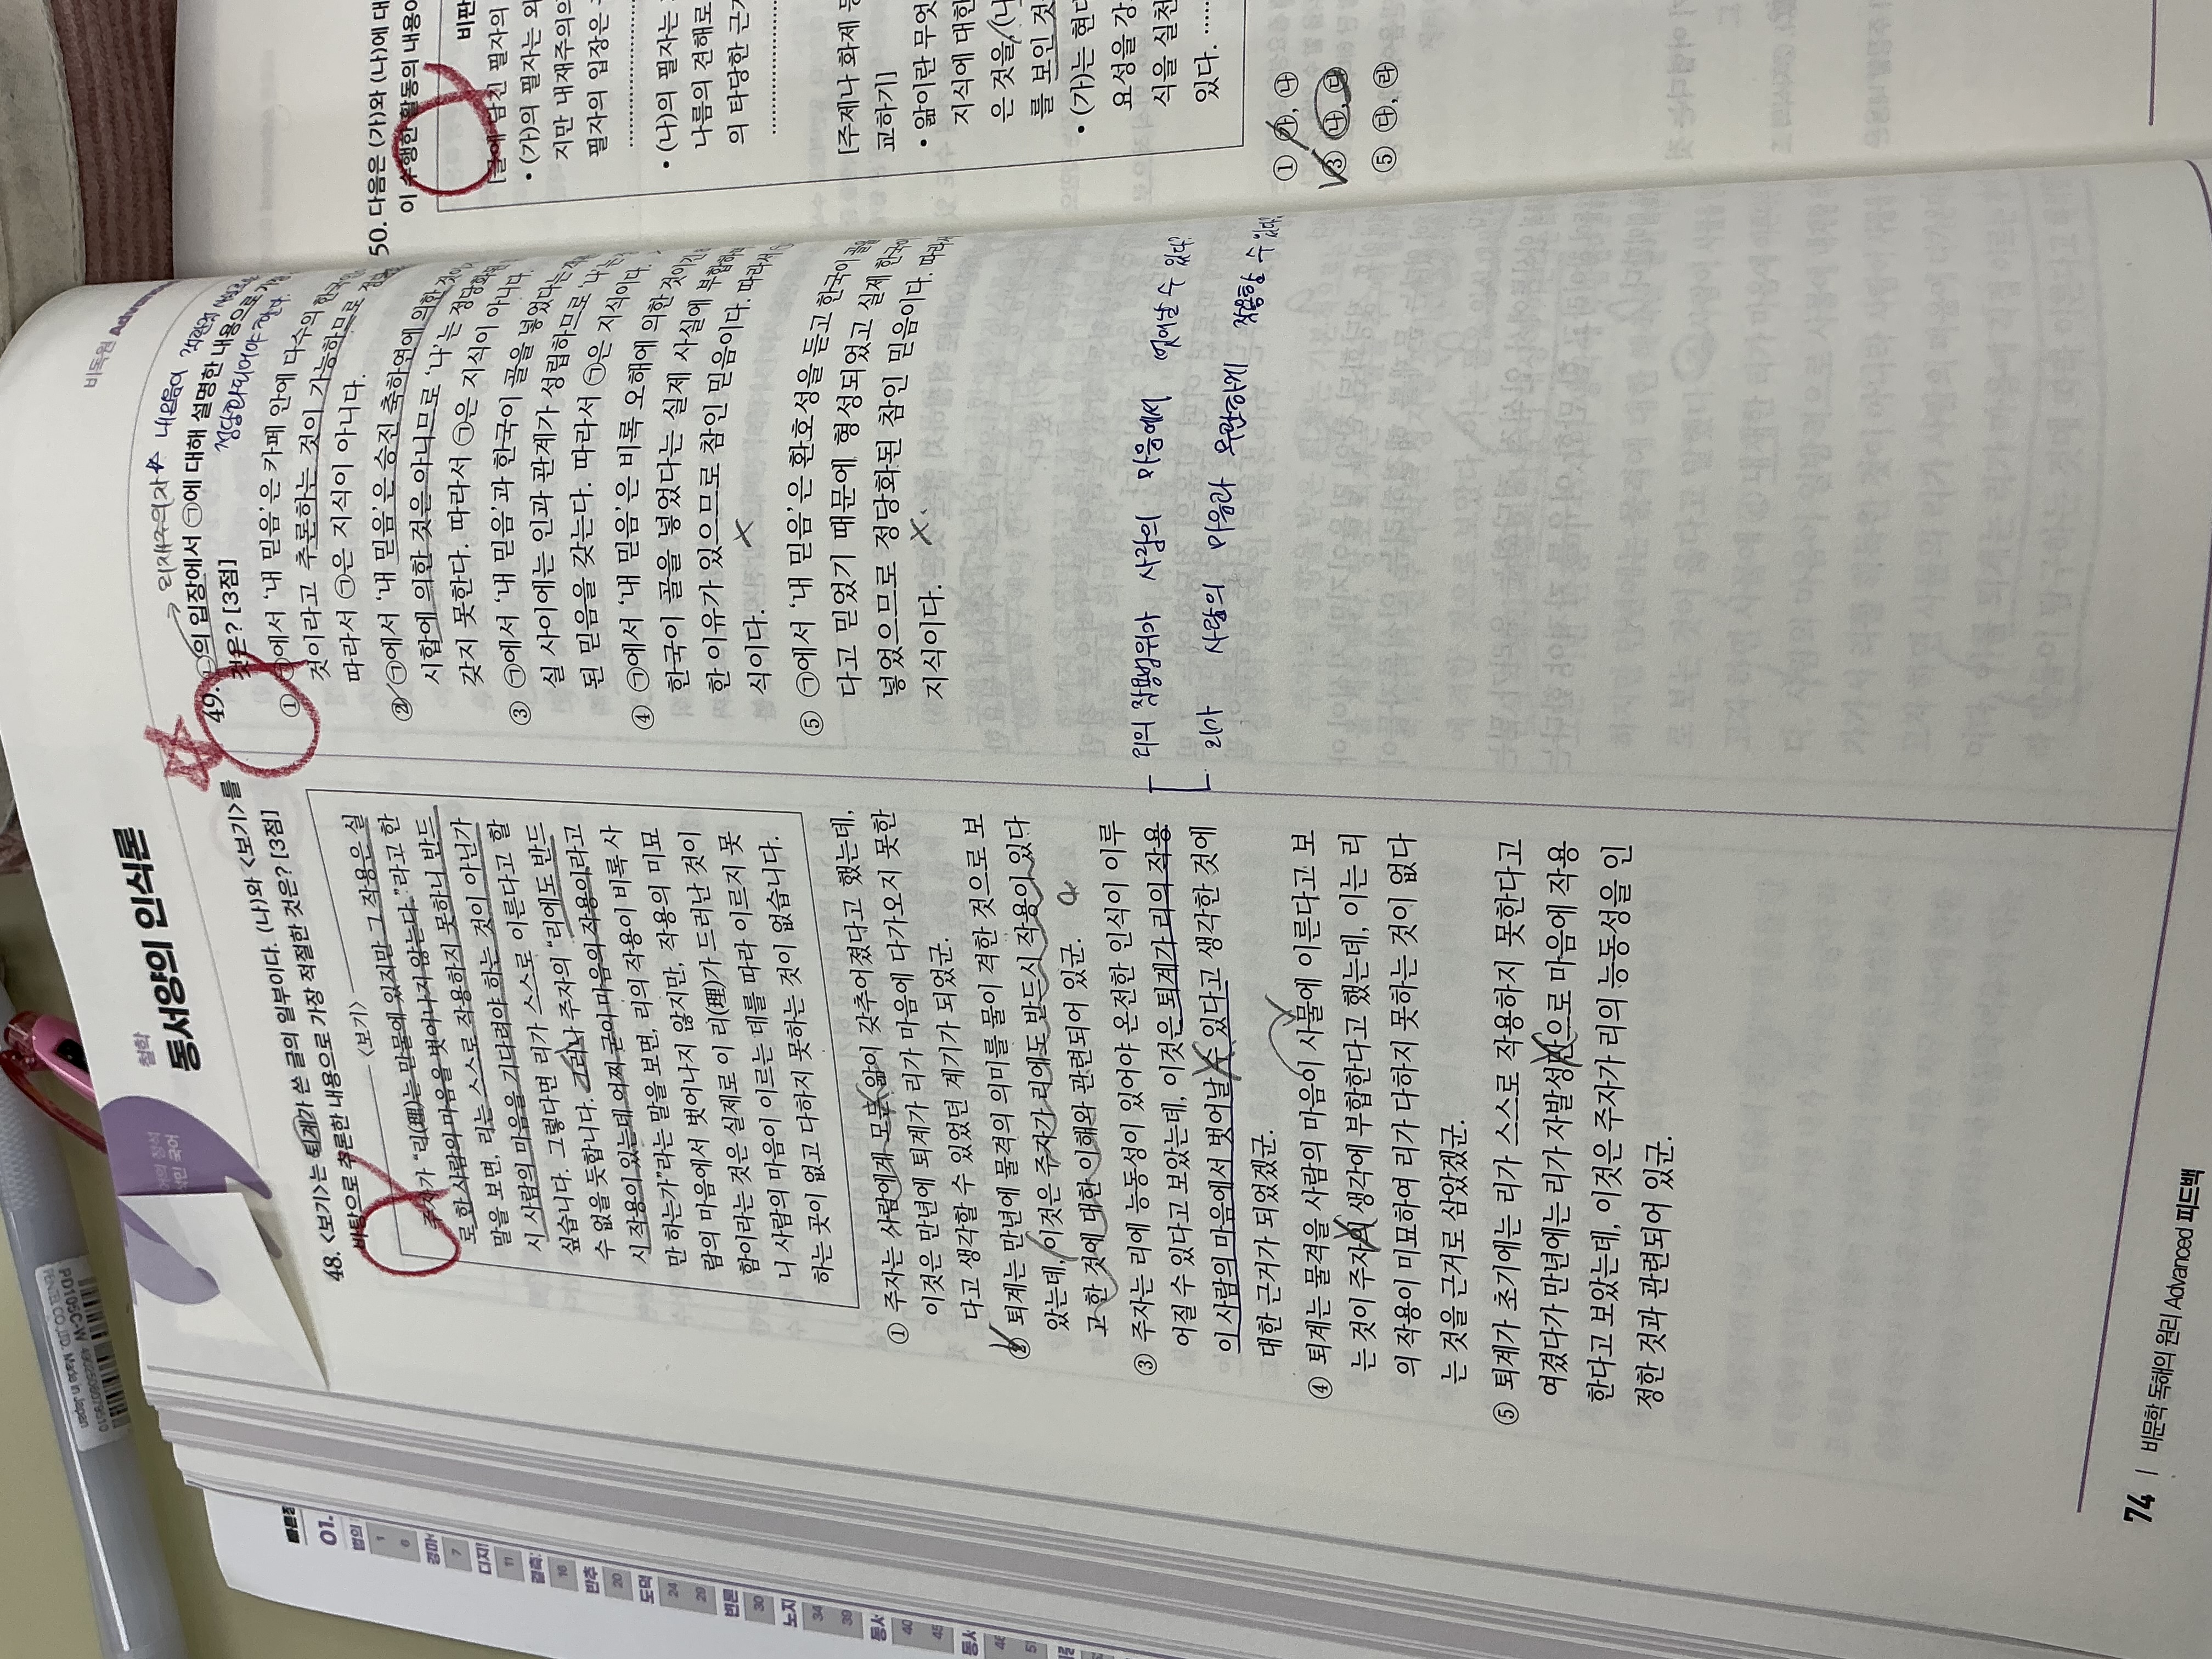 철학
동서양의 인식론
48. <보기>는 퇴계가 쓴 글의 일부이다. (나)와 <보기>를
바탕으로 추론한 내용으로 가장 적절한 것은? [3점]
<보기>
주자가 “리(理)는 만물에 있지만 그 작용은 실
로 한 사람의 마음을 벗어나지 않는다.”라고 한
말을 보면, 리는 스스로 작용하지 못하니 반드
시 사람의 마음을 기다려야 하는 것이 아닌가
싶습니다. 그렇다면 리가 스스로 이른다고 할
수 없을 듯합니다. 그러나 주자의 “리에도 반드
시 작용이 있는데 어찌 굳이 마음의 작용이라고
만 하는가”라는 말을 보면, 리의 작용이 비록 사
람의 마음에서 벗어나지 않지만, 작용의 미묘
함이라는 것은 실제로 이 리(理)가 드러난 것이
니 사람의 마음이 이르는 데를 따라 이르지 못
하는 곳이 없고 다하지 못하는 것이 없습니다.
① 주자는 사람에게 모든 앎이 갖추어졌다고 했는데,
이것은 만년에 퇴계가 리가 마음에 다가오지 못한
다고 생각할 수 있었던 계기가 되었군.
② 퇴계는 만년에 물격의 의미를 물이 격한 것으로 보
았는데, 이것은 주자가 리에도 반드시 작용이 있다
고 한 것에 대한 이해와 관련되어 있군.
③ 주자는 리에 능동성이 있어야 온전한 인식이 이루
어질 수 있다고 보았는데, 이것은 퇴계가 리의 작용
이 사람의 마음에서 벗어날 수 있다고 생각한 것에
대한 근거가 되었겠군.
④ 퇴계는 물격을 사람의 마음이 사물에 이른다고 보
는 것이 주자의 생각에 부합한다고 했는데, 이는 리
의 작용이 미묘하여 리가 다하지 못하는 것이 없다
는 것을 근거로 삼았겠군.
⑤ 퇴계가 초기에는 리가 스스로 작용하지 못한다고
여겼다가 만년에는 리가 자발성만으로 마음에 작용
한다고 보았는데, 이것은 주자가 리의 능동성을 인
정한 것과 관련되어 있군.
비독원 Adva
→ 외재주의자
내 믿음이
정당화되어야 한다.
49. ㉡의 입장에서 ㉠에 대해 설명한 내용으로 가장
것은? [3점]
① ㉠에서 ‘내 믿음’은 카페 안에 다수의 한국인
것이라고 추론하는 것이 가능하므로
따라서 ㉠은 지식이 아니다.
② ㉠에서 ‘내 믿음’은 승진 축하연에 의한 것이
시합에 의한 것은 아니므로 ‘나’는 정당화
갖지 못한다. 따라서 ㉠은 지식이 아니다.
③ ㉠에서 ‘내 믿음’과 한국이 골을 넣었다는
실 사이에는 인과 관계가 성립하므로 ‘나’는
된 믿음을 갖는다. 따라서 ㉠은 지식이다.
④ ㉠에서 ‘내 믿음’은 비록 오해에 의한 것이
한국이 골을 넣었다는 실제 사실에 부합
한 이유가 있으므로 참인 믿음이다. 따라서
식이다.
⑤ ㉠에서 ‘내 믿음’은 환호성을 듣고 한국이 골을
다고 믿었기 때문에 형성되었고 실제 한국이
넣었으므로 정당화된 참인 믿음이다. 따라
지식이다.
리의 작용범위가 사람의 마음에서 벗어날 수 있다?
리가 사람의 마음과 무관하게 작용할 수 있다?
74 | 비문학 독해의 원리 Advanced 피드백
50. 다음은 (가)와 (나)에 대
이 수행한 활동의 내용이
비판
[글에 담긴 필자의
• (가)의 필자는 외
지만 내재주의의
필자의 입장은
• (나)의 필자는
나름의 견해로
의 타당한 근거
[주제나 화제 등
교하기]
• 앎이란 무엇
지식에 대한
은 것을, (나
를 보인 것
• (가)는 현대
요성을 강
식을 실천
있다.
① ㉮, ㉯
③ ㉯, ㉰
⑤ ㉰, ㉱
01.
법의
1
6
경마
7
디지
11
결측
16
반추
20
도덕
24
29
변론
30
노자
34
39
동사
40
45
동사
46
51